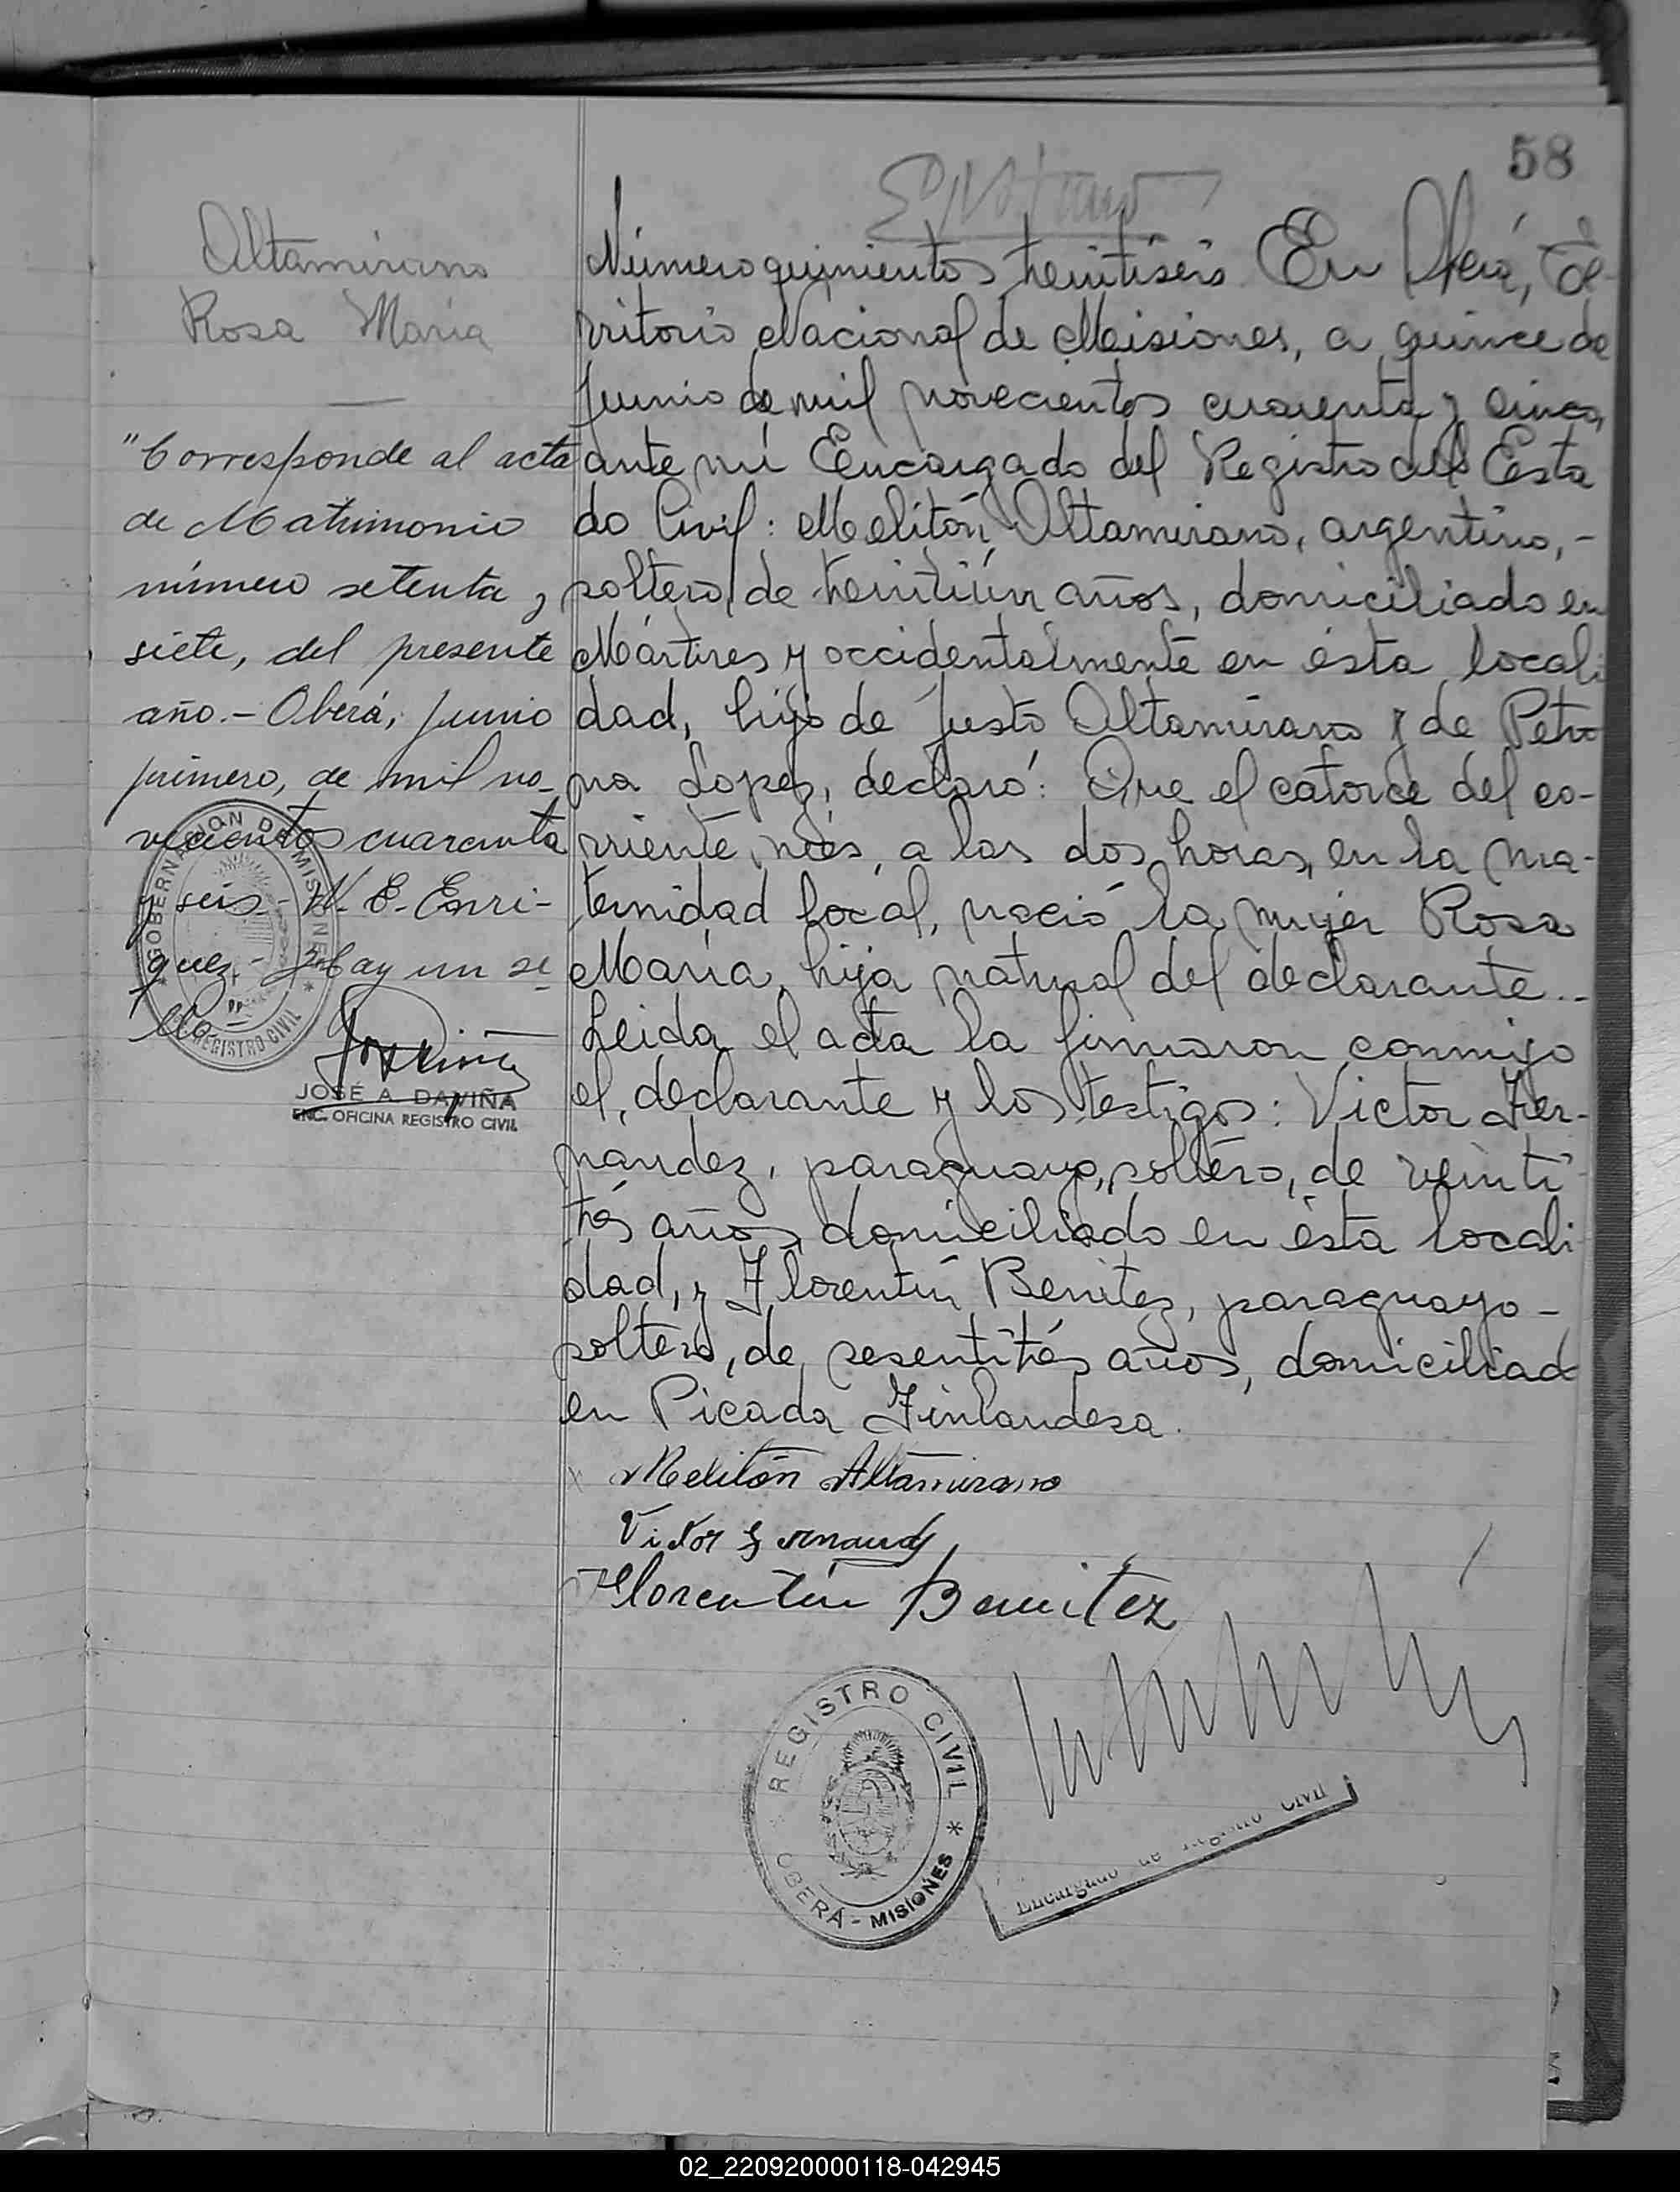 58
Altamirano
Rosa María
"Corresponde al acta
de Matrimonio
número setenta y
siete, del presente
año.- Oberá, junio
primero, de mil no-
vecientos cuarenta
y seis.- N. E. Enri-
quez - Hay un se
llo.-
GOBERNACION DE MISIONES
REGISTRO CIVIL
JOSÉ A. DAVIÑA
ENC. OFICINA REGISTRO CIVIL
Número quinientos treintiseis En Oberá, Te-
rritorio Nacional de Misiones, a quince de
junio de mil novecientos cuarenta y cinco,
ante mí Encargado del Registro del Esta
do Civil: Melitón Altamirano, argentino, -
soltero, de treintiún años, domiciliado en
Mártires y occidentalmente en ésta locali
dad, hijo de Justo Altamirano y de Petro
na Lopez, declaró: Que el catorce del co-
rriente mes, a las dos horas, en la ma-
ternidad local, nació la mujer Rosa
María, hija natural del declarante..
Leida el acta la firmaron conmigo
el declarante y los testigos: Victor Fer-
nandez, paraguayo, soltero, de veinti
trés años, domiciliado en ésta locali
dad, y Florentín Benitez, paraguayo -
soltero, de sesentitrés años, domiciliado
en Picada Finlandesa.
Melitón Altamirano
Victor Fernandez
Florentín Benitez
REGISTRO CIVIL
OBERÁ - MISIONES
Encargado de Registro Civil
02_220920000118-042945